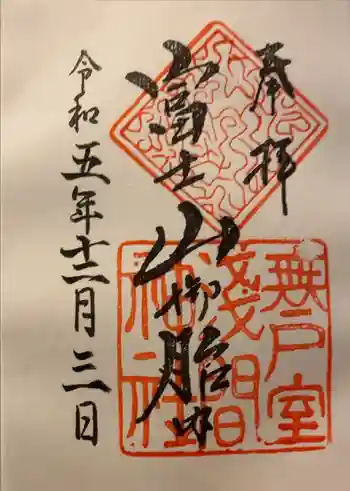 奉拝
富士山御胎内
無戸室
浅間
神社
令和五年十二月三日